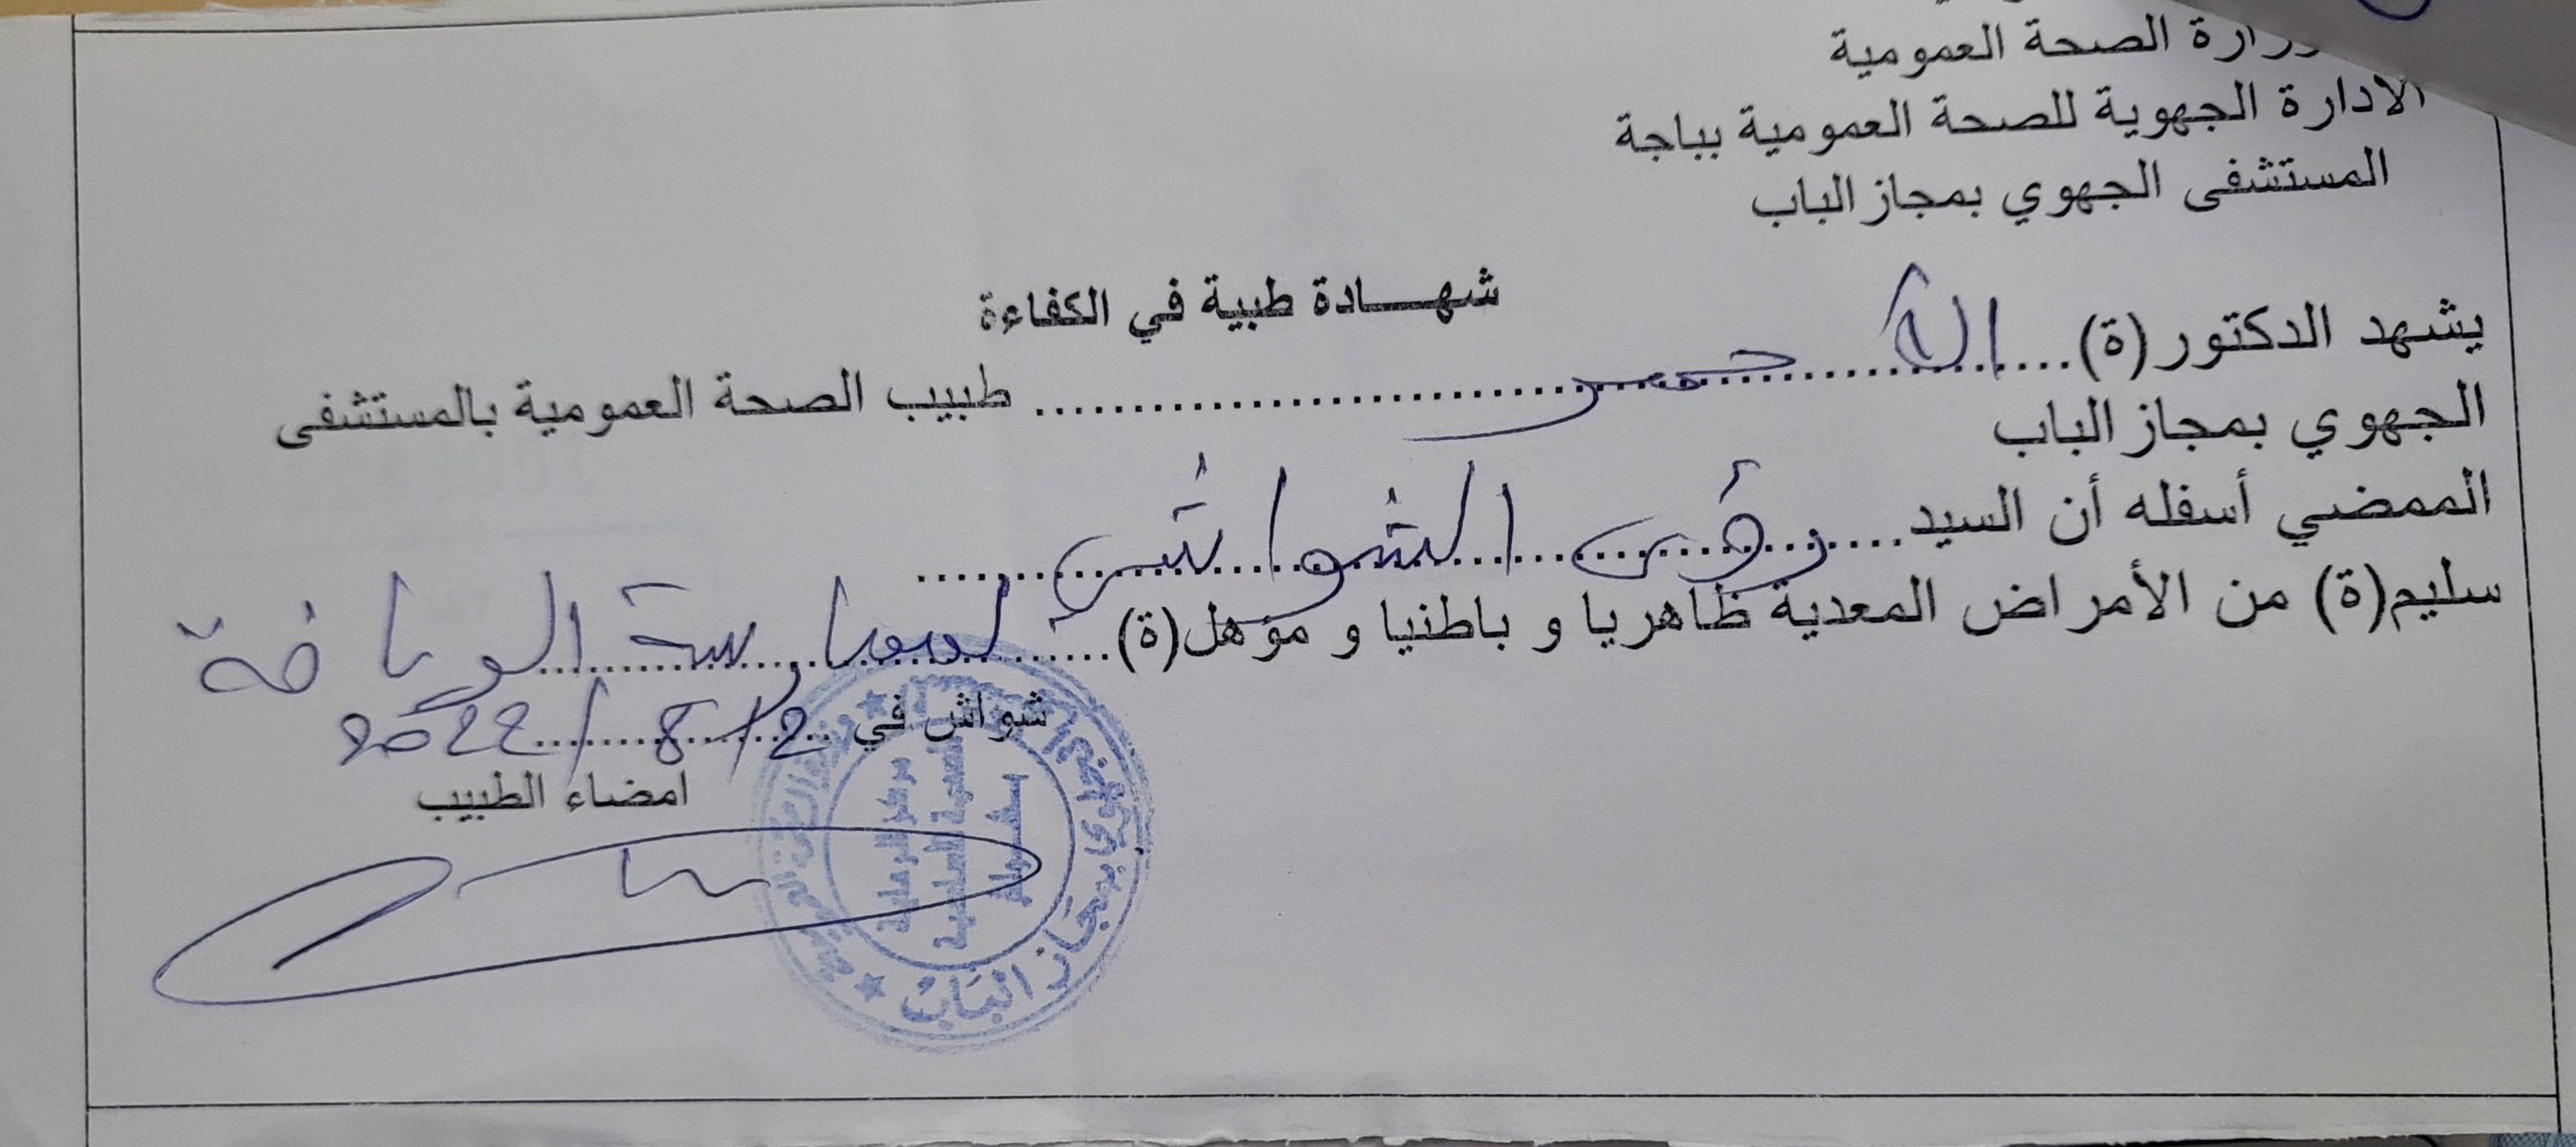 وزارة الصحة العمومية
الادارة الجهوية للصحة العمومية بباجة
المستشفى الجهوي بمجاز الباب
شهـــادة طبية في الكفاءة
يشهد الدكتور(ة).... طبيب الصحة العمومية بالمستشفى
الجهوي بمجاز الباب
الممضي أسفله أن السيد.... الشواشي
سليم(ة) من الأمراض المعدية ظاهريا و باطنيا و مؤهل(ة).... لممارسة الرياضة
شواش في 2/8/2022
امضاء الطبيب
مركز الرعاية
الصحية الأساسية
بشواش
بمجاز الباب